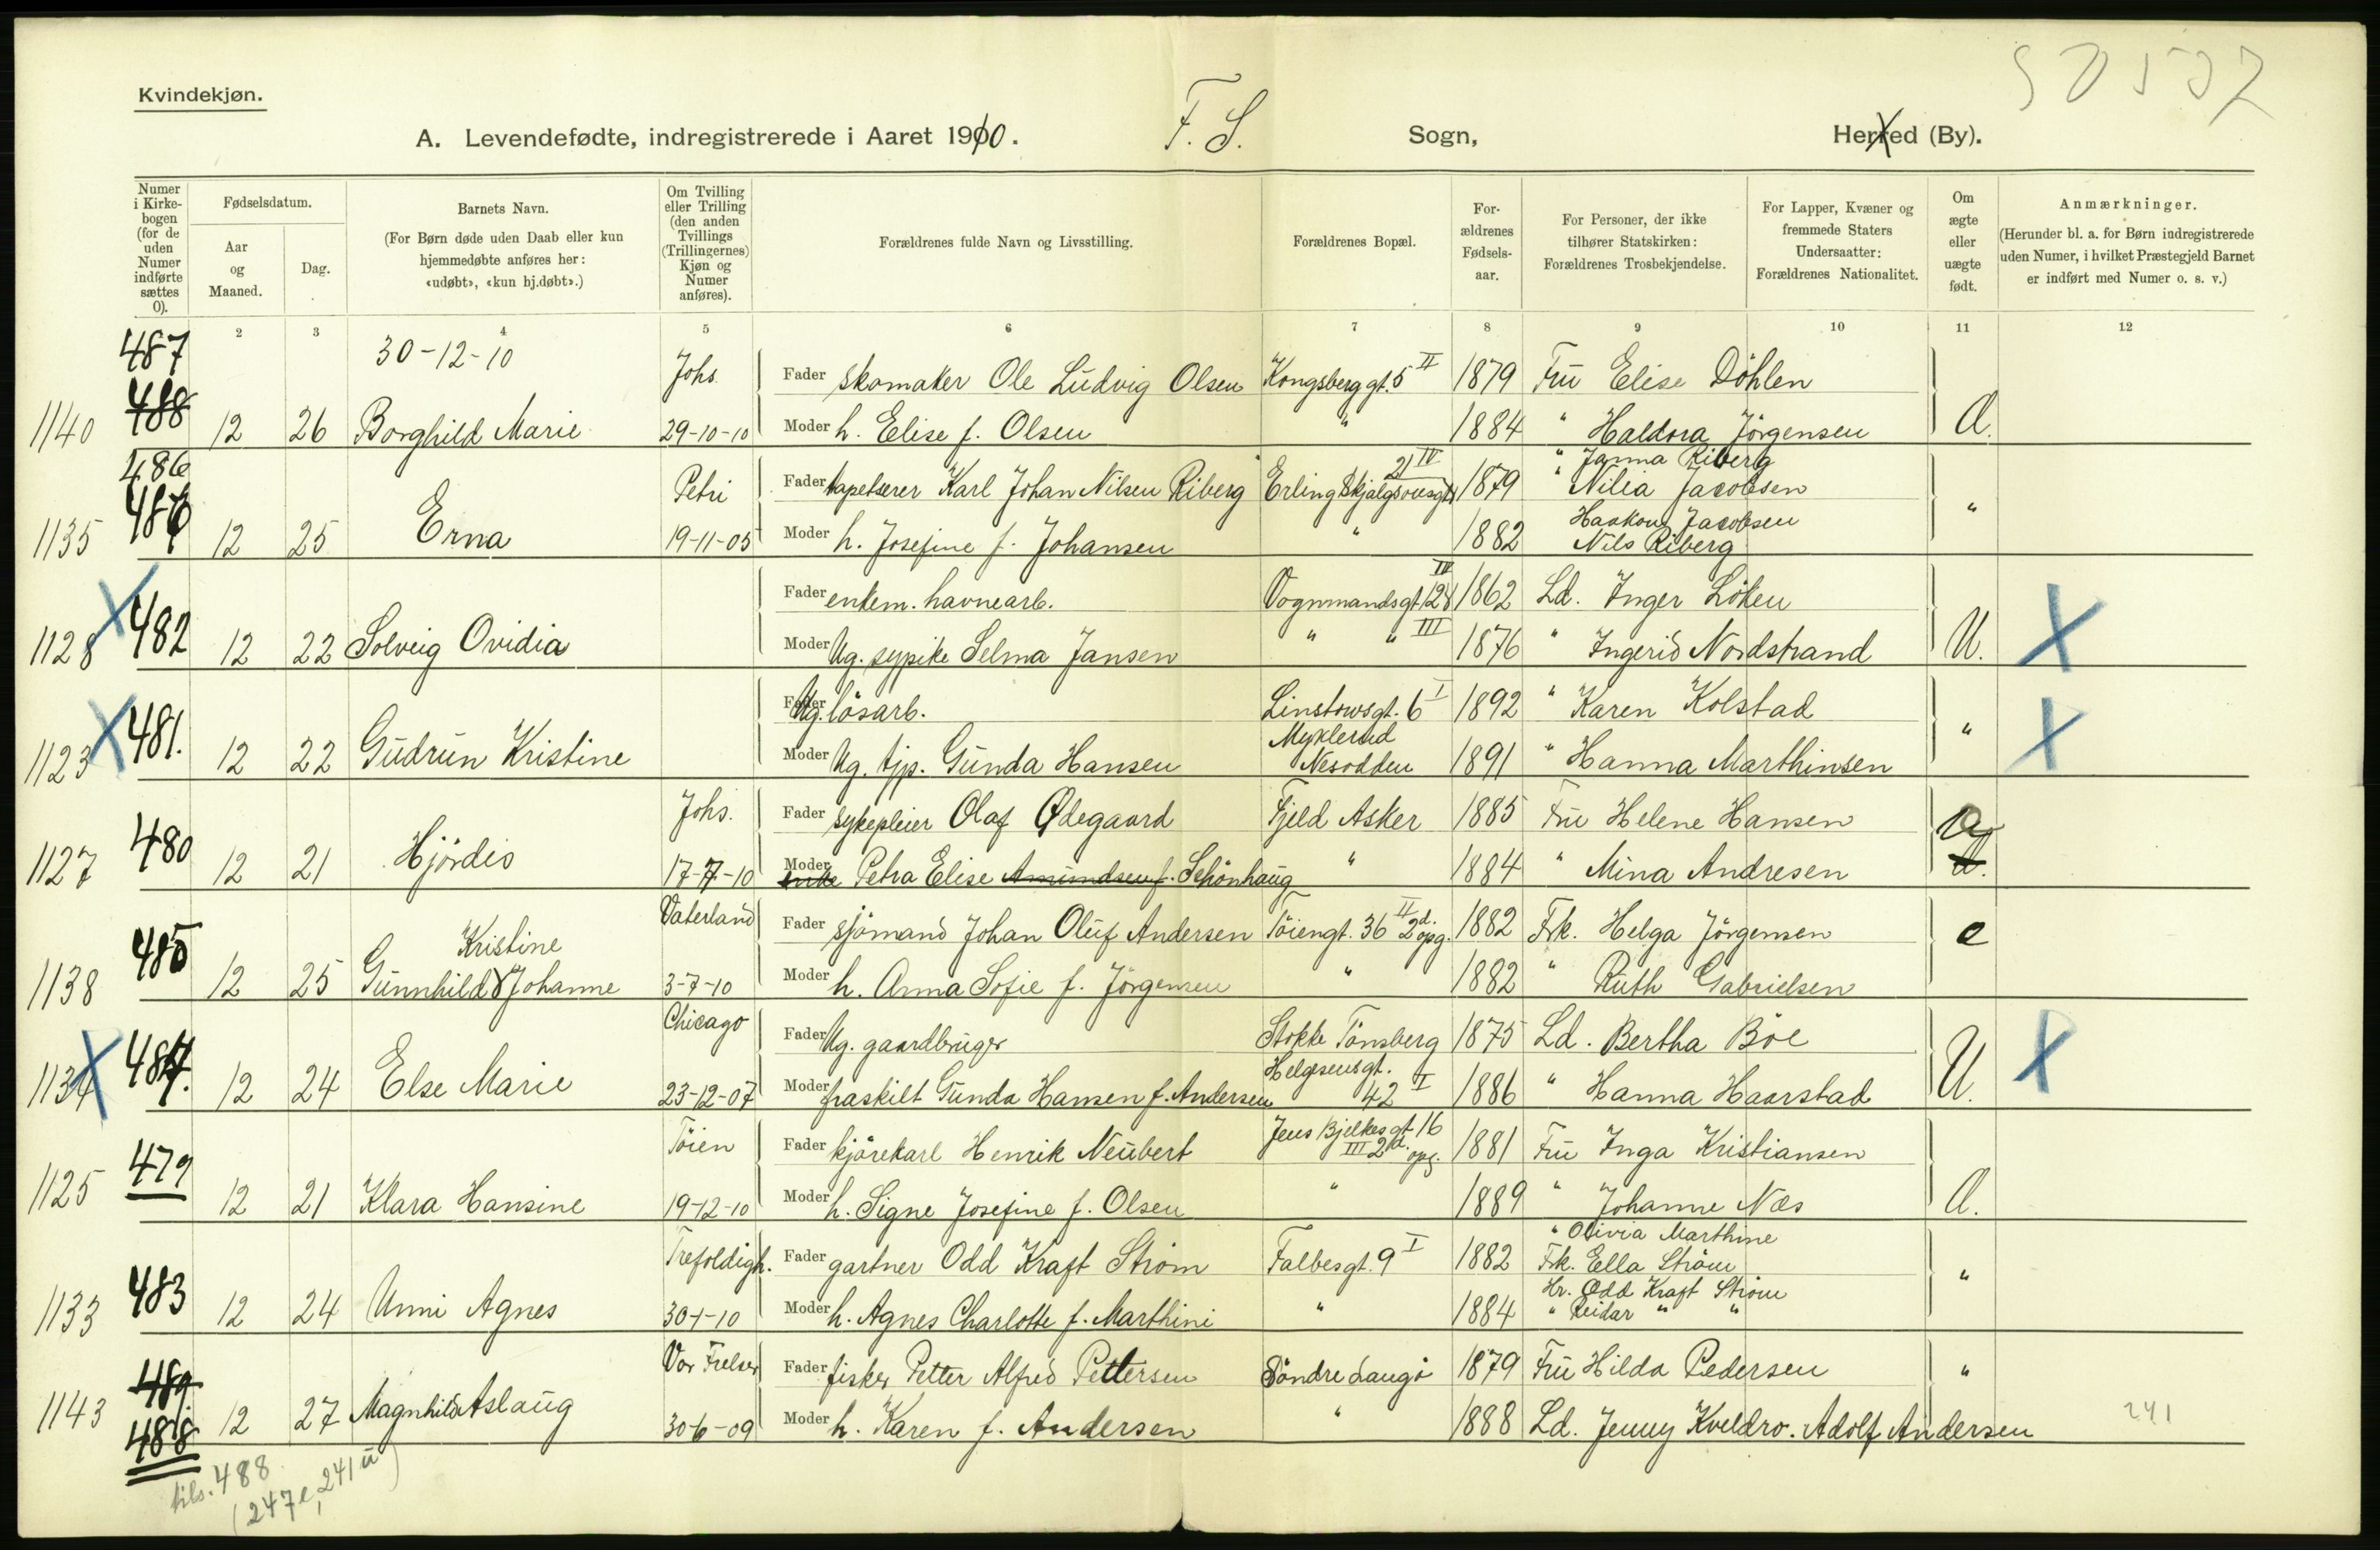 50507
Kvindekjøn.
A. Levendefødte, indregistrerede i Aaret 1910. F. S. Sogn, Herred (By).
Numer i Kirke-bogen (for de uden Numer indførte sættes 0).
Fødselsdatum.
Aar og Maaned.
Dag.
Barnets Navn.
(For Børn døde uden Daab eller kun hjemmedøbte anføres her: «udøbt», «kun hj.døbt».)
Om Tvilling eller Trilling (den anden Tvillings (Trillingernes) Kjøn og Numer anføres).
Forældrenes fulde Navn og Livsstilling.
Forældrenes Bopæl.
For-ældrenes Fødsels-aar.
For Personer, der ikke tilhører Statskirken: Forældrenes Trosbekjendelse.
For Lapper, Kvæner og fremmede Staters Undersaatter: Forældrenes Nationalitet.
Om ægte eller uægte født.
Anmærkninger.
(Herunder bl. a. for Børn indregistrerede uden Numer, i hvilket Præstegjeld Barnet er indført med Numer o. s. v.)
2 3 4 5 6 7 8 9 10 11 12
487 30-12-10 Johs. Fader skomaker Ole Ludvig Olsen Kongsberg gt. 5 II 1879 Fru Elise Döhlen
1140 488 12 26 Borghild Marie 29-10-10 Moder h. Elise f. Olsen " 1884 " Haldora Jörgensen A.
486 Petri Fader tapetserer Karl Johan Nilsen Riberg Erling Skjalgsonsgt. 21 IV 1879 " Janna Riberg
" Nilia Jacobsen
1135 486 12 25 Erna 19-11-05 Moder h. Josefine f. Johansen " 1882 Haakon Jacobsen "
Nils Riberg
Fader enkem. havnearb. Vognmandsgt. 12 IV 1862 Ld. Inger Löken
1128 X 482 12 22 Solveig Ovidia Moder Ug. sypike Selma Jansen " " III 1876 " Ingerid Nordstrand U. X
Fader Ug. lösarb. Linstowsgt. 6 I 1892 " Karen Kolstad
1123 X 481. 12 22 Gudrun Kristine Moder Ug. tjp. Gunda Hansen Myklerud Nesodden 1891 " Hanna Marthinsen " X
Johs. Fader sykepleier Olaf Ødegaard Fjeld Asker 1885 Fru Helene Hansen
1127 480 12 21 Hjördis 17-7-10 Moder enke Petra Elise Amundsen f. Schönhaug " 1884 " Mina Andresen
Vaterland Fader sjömand Johan Oluf Andersen Töiengt. 36 II 2d. opg. 1882 Frk. Helga Jörgensen e
Kristine
1138 485 12 25 Gunnhild Johanne 3-7-10 Moder h. Anna Sofie f. Jörgensen " 1882 " Ruth Gabrielsen
Chicago Fader Ug. gaardbruger Stokke Tönsberg 1875 Ld. Bertha Böe
1134 X 484. 12 24 Else Marie 23-12-07 Moder fraskilt Gunda Hansen f. Andersen Helgesensgt. 42 I 1886 " Hanna Haarstad U. X
Töien Fader kjörekarl Henrik Neubert Jens Bjelkesgt. 16 III 2d. opg. 1881 Fru Inga Kristiansen
1125 479 12 21 Klara Hansine 19-12-10 Moder h. Signe Josefine f. Olsen " 1889 " Johanne Næs A.
" Olivia Marthine
Trefoldigh. Fader gartner Odd Kraft Ström Falbesgt. 9 I 1882 Frk. Ella Ström
Hr. Odd Kraft Ström
1133 483 12 24 Unni Agnes 30-1-10 Moder h. Agnes Charlotte f. Marthini " 1884 " Reidar " " "
Vor Frelser Fader fisker Petter Alfred Pettersen Söndre Langö 1879 Fru Hilda Pedersen "
1143 489. 12 27 Magnhild Aslaug 30-6-09 Moder h. Karen f. Andersen " 1888 Ld. Jenny Kveldro. Adolf Andersen 241
488
tils. 488
(247 e, 241 u)